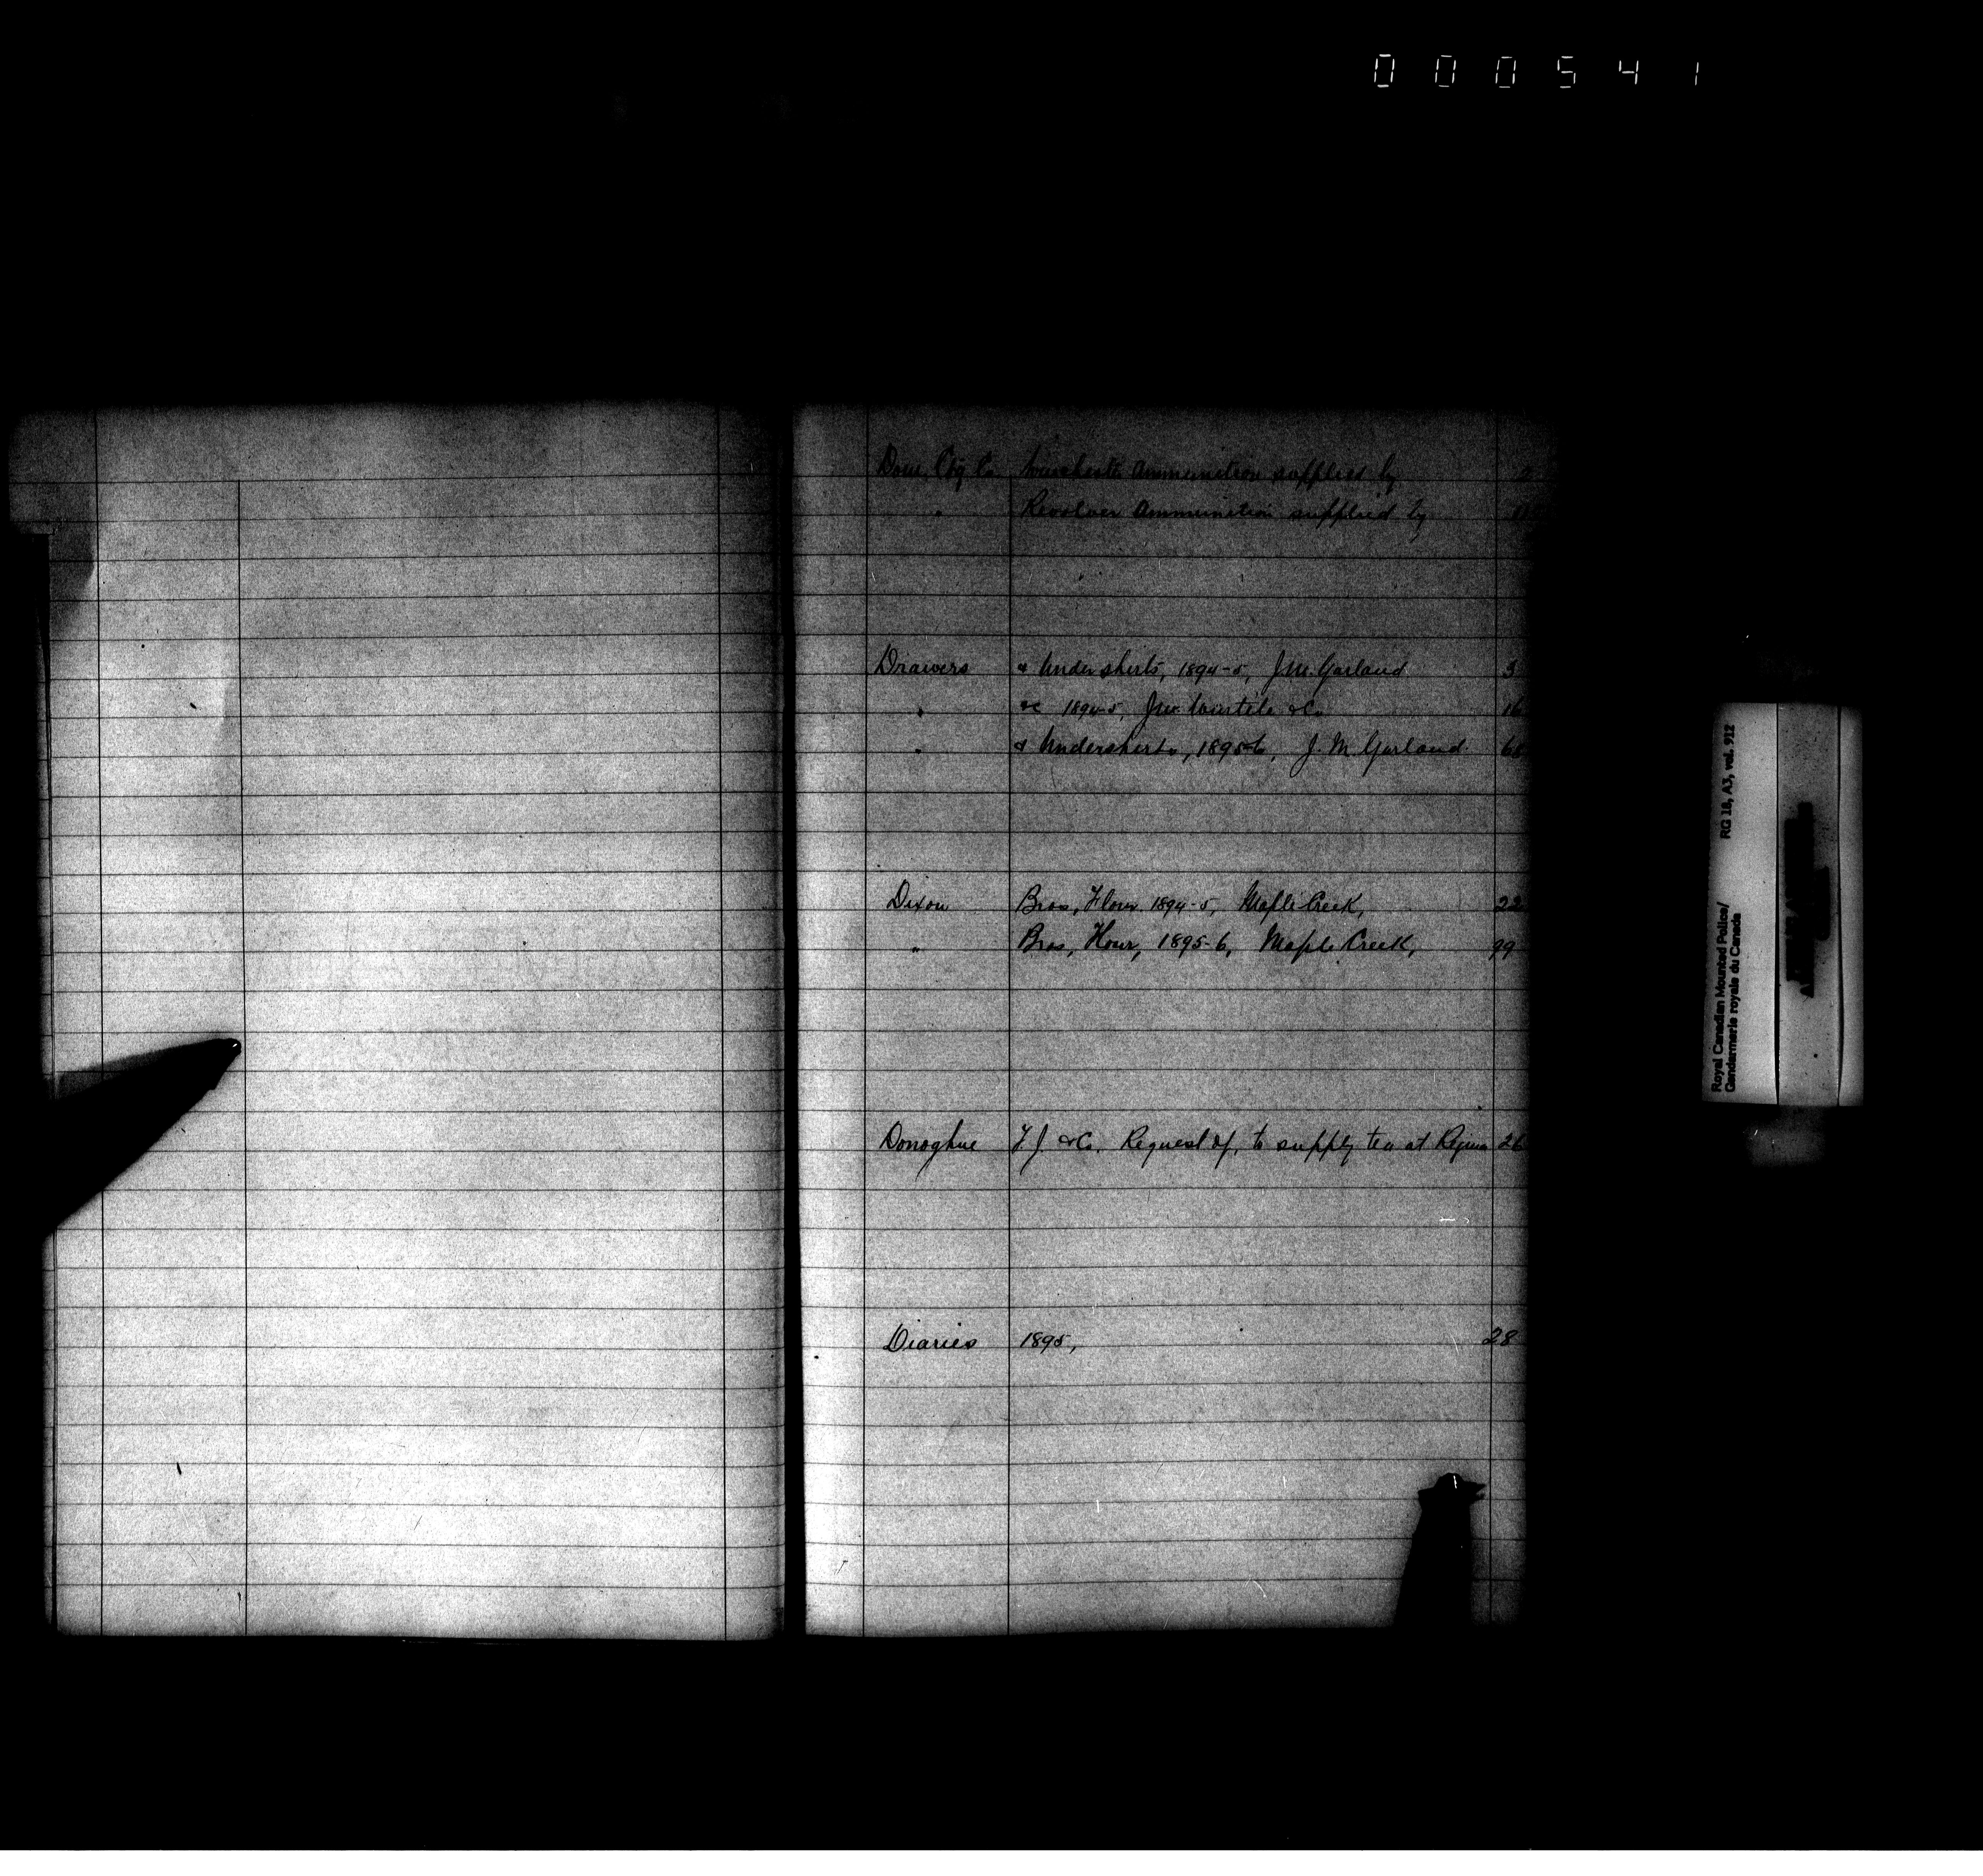 000541
Dom. Ctg Co Winchester Ammunition supplied by 2
" Revolver Ammunition supplied by
Drawers & Undershirts, 1894-5, J.M. Garland 3
" &c 1894-5, J.W. & Co 16
" & Undershirts, 1895-6, J. M. Garland
Dixon Bros, Flour 1894-5, Maple Creek, 22
" Bros, Flour, 1895-6, Maple Creek, 99
Donoghue F J. & Co. Request of, to supply tea at Regina 26
Diaries 1895, 28
Royal Canadian Mounted Police/ RG 18, A3, vol. 912
Gendarmerie royale du Canada